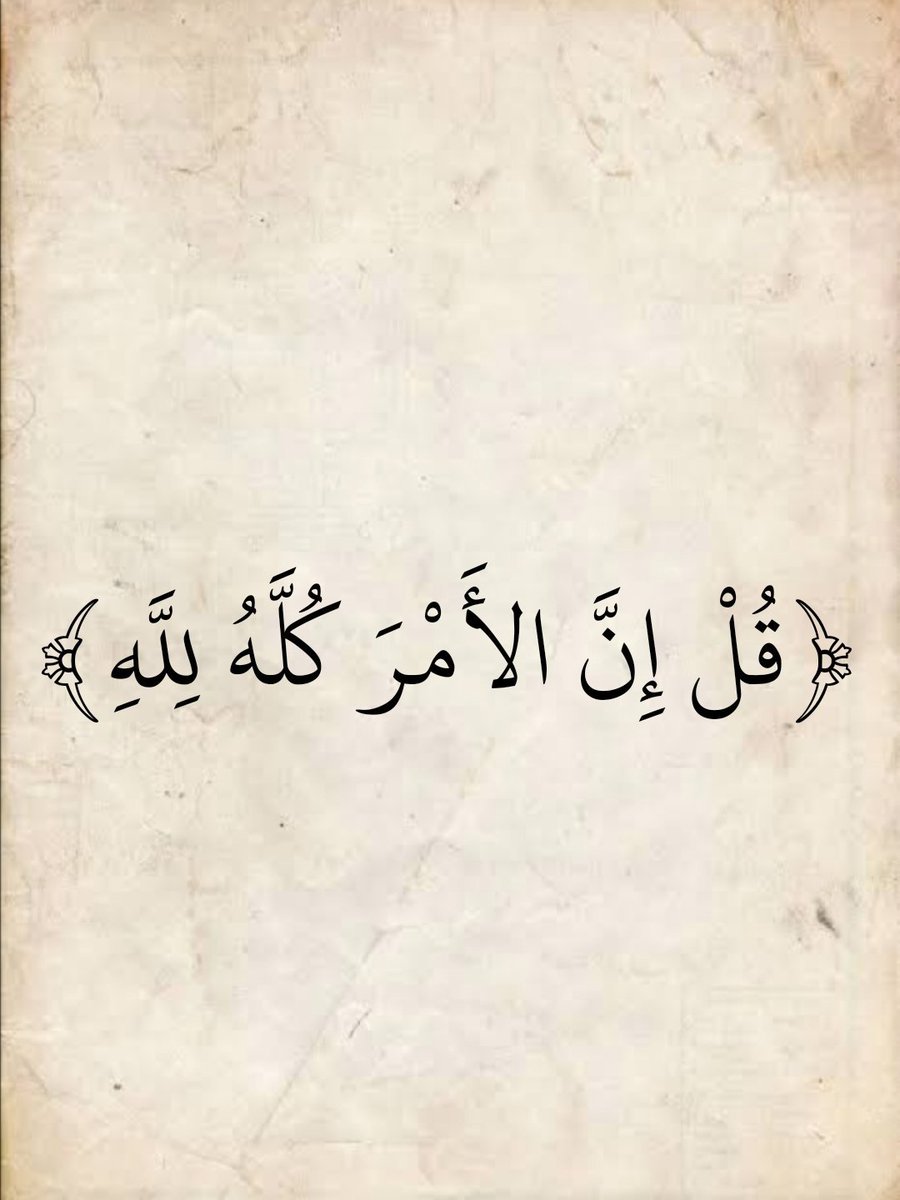 ﴿قُلْ إِنَّ الأَمْرَ كُلَّهُ لِلَّهِ﴾